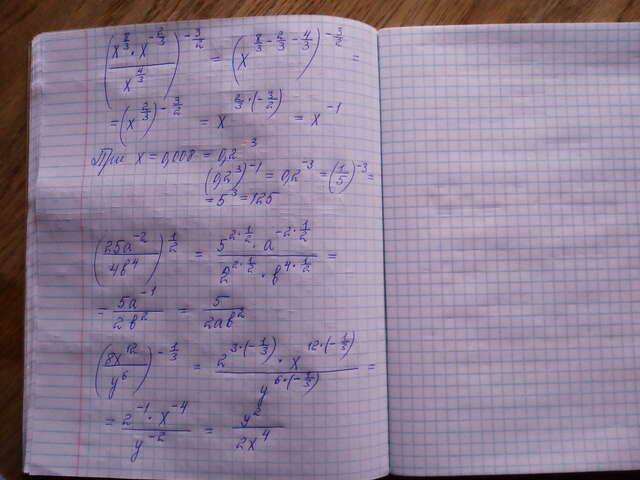 (x^(8/3) · x^(-2/3) / x^(4/3))^(-3/2) = (x^(8/3 - 2/3 - 4/3))^(-3/2) =
= (x^(2/3))^(-3/2) = x^(2/3 · (-3/2)) = x^(-1)
При x = 0,008 = 0,2^3
(0,2^3)^(-1) = 0,2^(-3) = (1/5)^(-3) =
= 5^3 = 125
(25a^(-2) / 4b^4)^(1/2) = 5^(2·1/2) · a^(-2·1/2) / 2^(2·1/2) · b^(4·1/2) =
= 5a^(-1) / 2b^2 = 5 / 2ab^2
(8x^12 / y^6)^(-1/3) = 2^(3·(-1/3)) · x^(12·(-1/3)) / y^(6·(-1/3)) =
= 2^(-1) · x^(-4) / y^(-2) = y^2 / 2x^4